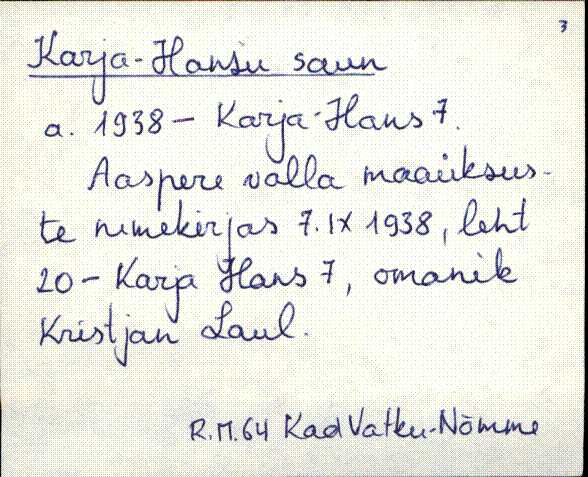 3
Karja-Hansu saun
a. 1938 – Karja-Hans 7.
Aaspere valla maaüksus-
te nimekirjas 7. IX 1938, leht
20 – Karja Hans 7, omanik
Kristjan Laul.
R.M.64 Kad Vatku-Nõmme